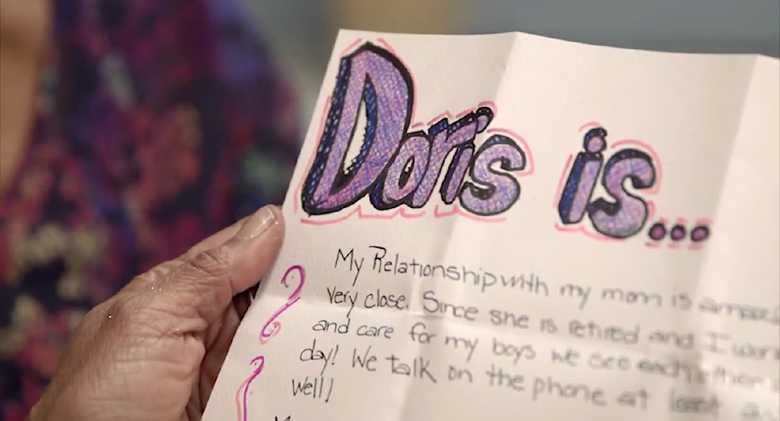 Doris is...
My Relationship with my mom is
very close. Since she is retired and I work
and care for my boys we see each other
day! We talk on the phone at least
well!